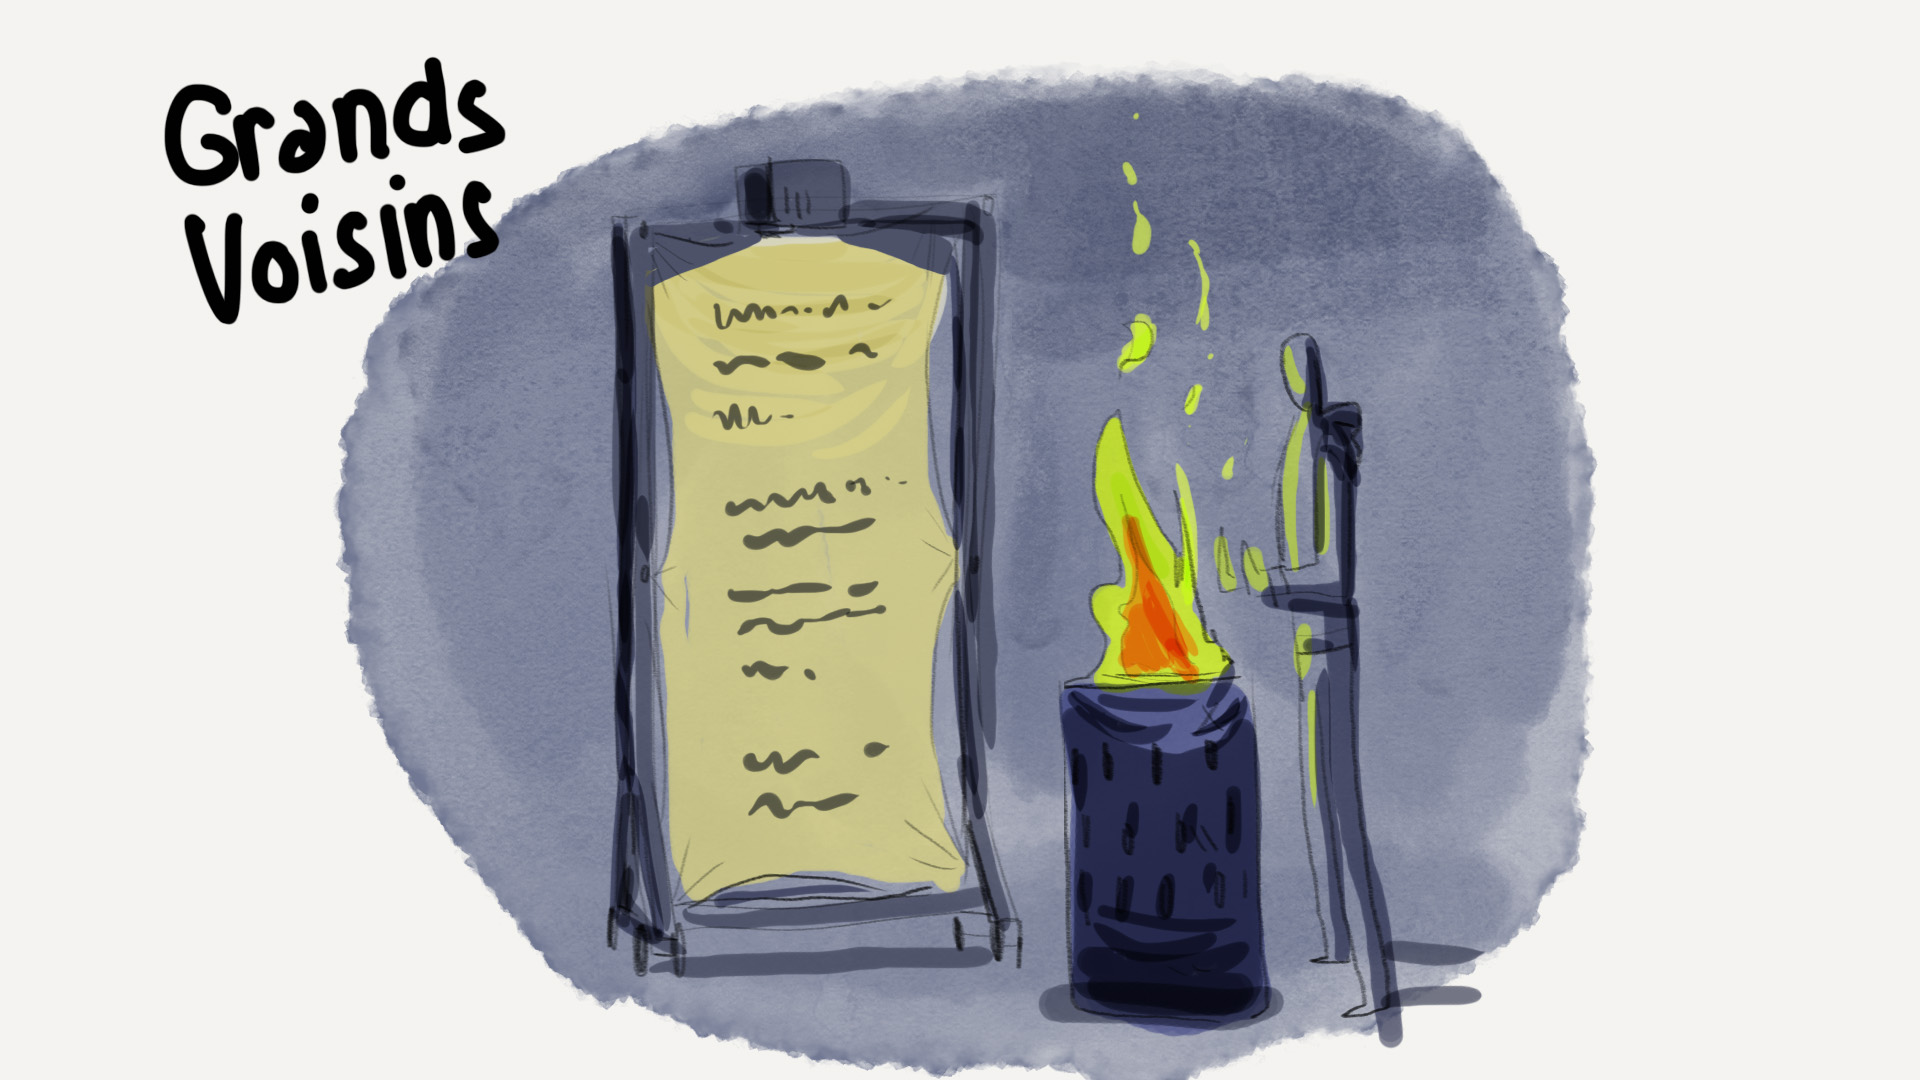 Grands
Voisins